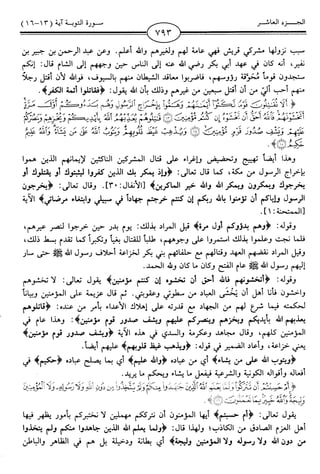 الجـــزء العاشـــر
٧٩٣
سورة التوبة آية (١٣-١٦)
سبب نزولها مشركي قريش فهي عامة لهم ولغيرهم والله أعلم. وعن عبد الرحمن بن جبير بن
نفير، أنه كان في عهد أبي بكر رضي الله عنه إلى الناس حين وجههم إلى الشام قال: إنكم
ستجدون قوماً مُحوَّقة رؤوسهم، فاضربوا معاقد الشيطان منهم بالسيوف، فوالله لأن أقتل رجلاً
منهم أحب إليّ من أن أقتل سبعين من غيرهم وذلك بأن الله يقول: ﴿فقاتلوا أئمة الكفر﴾.
﴿أَلَا تُقَاتِلُونَ قَوْمًا نَكَثُوا أَيْمَانَهُمْ وَهَمُّوا بِإِخْرَاجِ الرَّسُولِ وَهُم بَدَءُوكُمْ أَوَّلَ مَرَّةٍ
أَتَخْشَوْنَهُمْ فَاللَّهُ أَحَقُّ أَن تَخْشَوْهُ إِن كُنتُم مُّؤْمِنِينَ ۝ قَاتِلُوهُمْ يُعَذِّبْهُمُ اللَّهُ بِأَيْدِيكُمْ وَيُخْزِهِمْ وَيَنصُرْكُمْ
عَلَيْهِمْ وَيَشْفِ صُدُورَ قَوْمٍ مُّؤْمِنِينَ ۝ وَيُذْهِبْ غَيْظَ قُلُوبِهِمْ وَيَتُوبُ اللَّهُ عَلَى مَن يَشَاءُ وَاللَّهُ عَلِيمٌ
حَكِيمٌ ۝﴾
وهذا أيضاً تهييج وتحضيض وإغراء على قتال المشركين الناكثين لأيمانهم الذين هموا
بإخراج الرسول من مكة، كما قال تعالى: ﴿وإذ يمكر بك الذين كفروا ليثبتوك أو يقتلوك أو
يخرجوك ويمكرون ويمكر الله والله خير الماكرين﴾ [الأنفال: ٣٠]. وقال تعالى: ﴿يخرجون
الرسول وإياكم أن تؤمنوا بالله ربكم إن كنتم خرجتم جهاداً في سبيلي وابتغاء مرضاتي﴾ الآية
[الممتحنة: ١].
وقوله: ﴿وهم بدؤوكم أول مرة﴾ قيل المراد بذلك: يوم بدر حين خرجوا لنصر عيرهم،
فلما نجت وعلموا بذلك استمروا على وجوههم، طلباً للقتال بغياً وتكبراً كما تقدم بسط ذلك،
وقيل المراد نقضهم العهد وقتالهم مع حلفائهم بني بكر لخزاعة أحلاف رسول الله ﷺ حتى سار
إليهم رسول الله ﷺ عام الفتح وكان ما كان ولله الحمد.
وقوله: ﴿أتخشونهم فالله أحق أن تخشوه إن كنتم مؤمنين﴾ يقول تعالى: لا تخشوهم
واخشون فأنا أهل أن يَخْشى العباد من سطوتي وعقوبتي. ثم قال عزيمة على المؤمنين وبياناً
لحكمته فيما شرع لهم من الجهاد مع قدرته على إهلاك الأعداء بأمر من عنده: ﴿قاتلوهم
يعذبهم الله بأيديكم ويخزهم وينصركم عليهم ويشف صدور قوم مؤمنين﴾: وهذا عام في
المؤمنين كلهم، وقال مجاهد وعكرمة والسدي في هذه الآية ﴿ويشف صدور قوم مؤمنين﴾
يعني خزاعة، وأعاد الضمير في قوله: ﴿ويذهب غيظ قلوبهم﴾ عليهم أيضاً.
﴿ويتوب الله على من يشاء﴾ أي من عباده ﴿والله عليم﴾ أي بما يصلح عباده ﴿حكيم﴾ في
أفعاله وأقواله الكونية والشرعية فيفعل ما يشاء ويحكم ما يريد.
﴿أَمْ حَسِبْتُمْ أَن تُتْرَكُوا وَلَمَّا يَعْلَمِ اللَّهُ الَّذِينَ جَاهَدُوا مِنكُمْ وَلَمْ يَتَّخِذُوا مِن دُونِ اللَّهِ وَلَا رَسُولِهِ وَلَا الْمُؤْمِنِينَ
وَلِيجَةً وَاللَّهُ خَبِيرٌ بِمَا تَعْمَلُونَ ۝﴾
يقول تعالى: ﴿أم حسبتم﴾ أيها المؤمنون أن نترككم مهملين لا نختبركم بأمور يظهر فيها
أهل العزم الصادق من الكاذب؛ ولهذا قال: ﴿ولما يعلم الله الذين جاهدوا منكم ولم يتخذوا
من دون الله ولا رسوله ولا المؤمنين وليجة﴾ أي بطانة ودخيلة بل هم في الظاهر والباطن